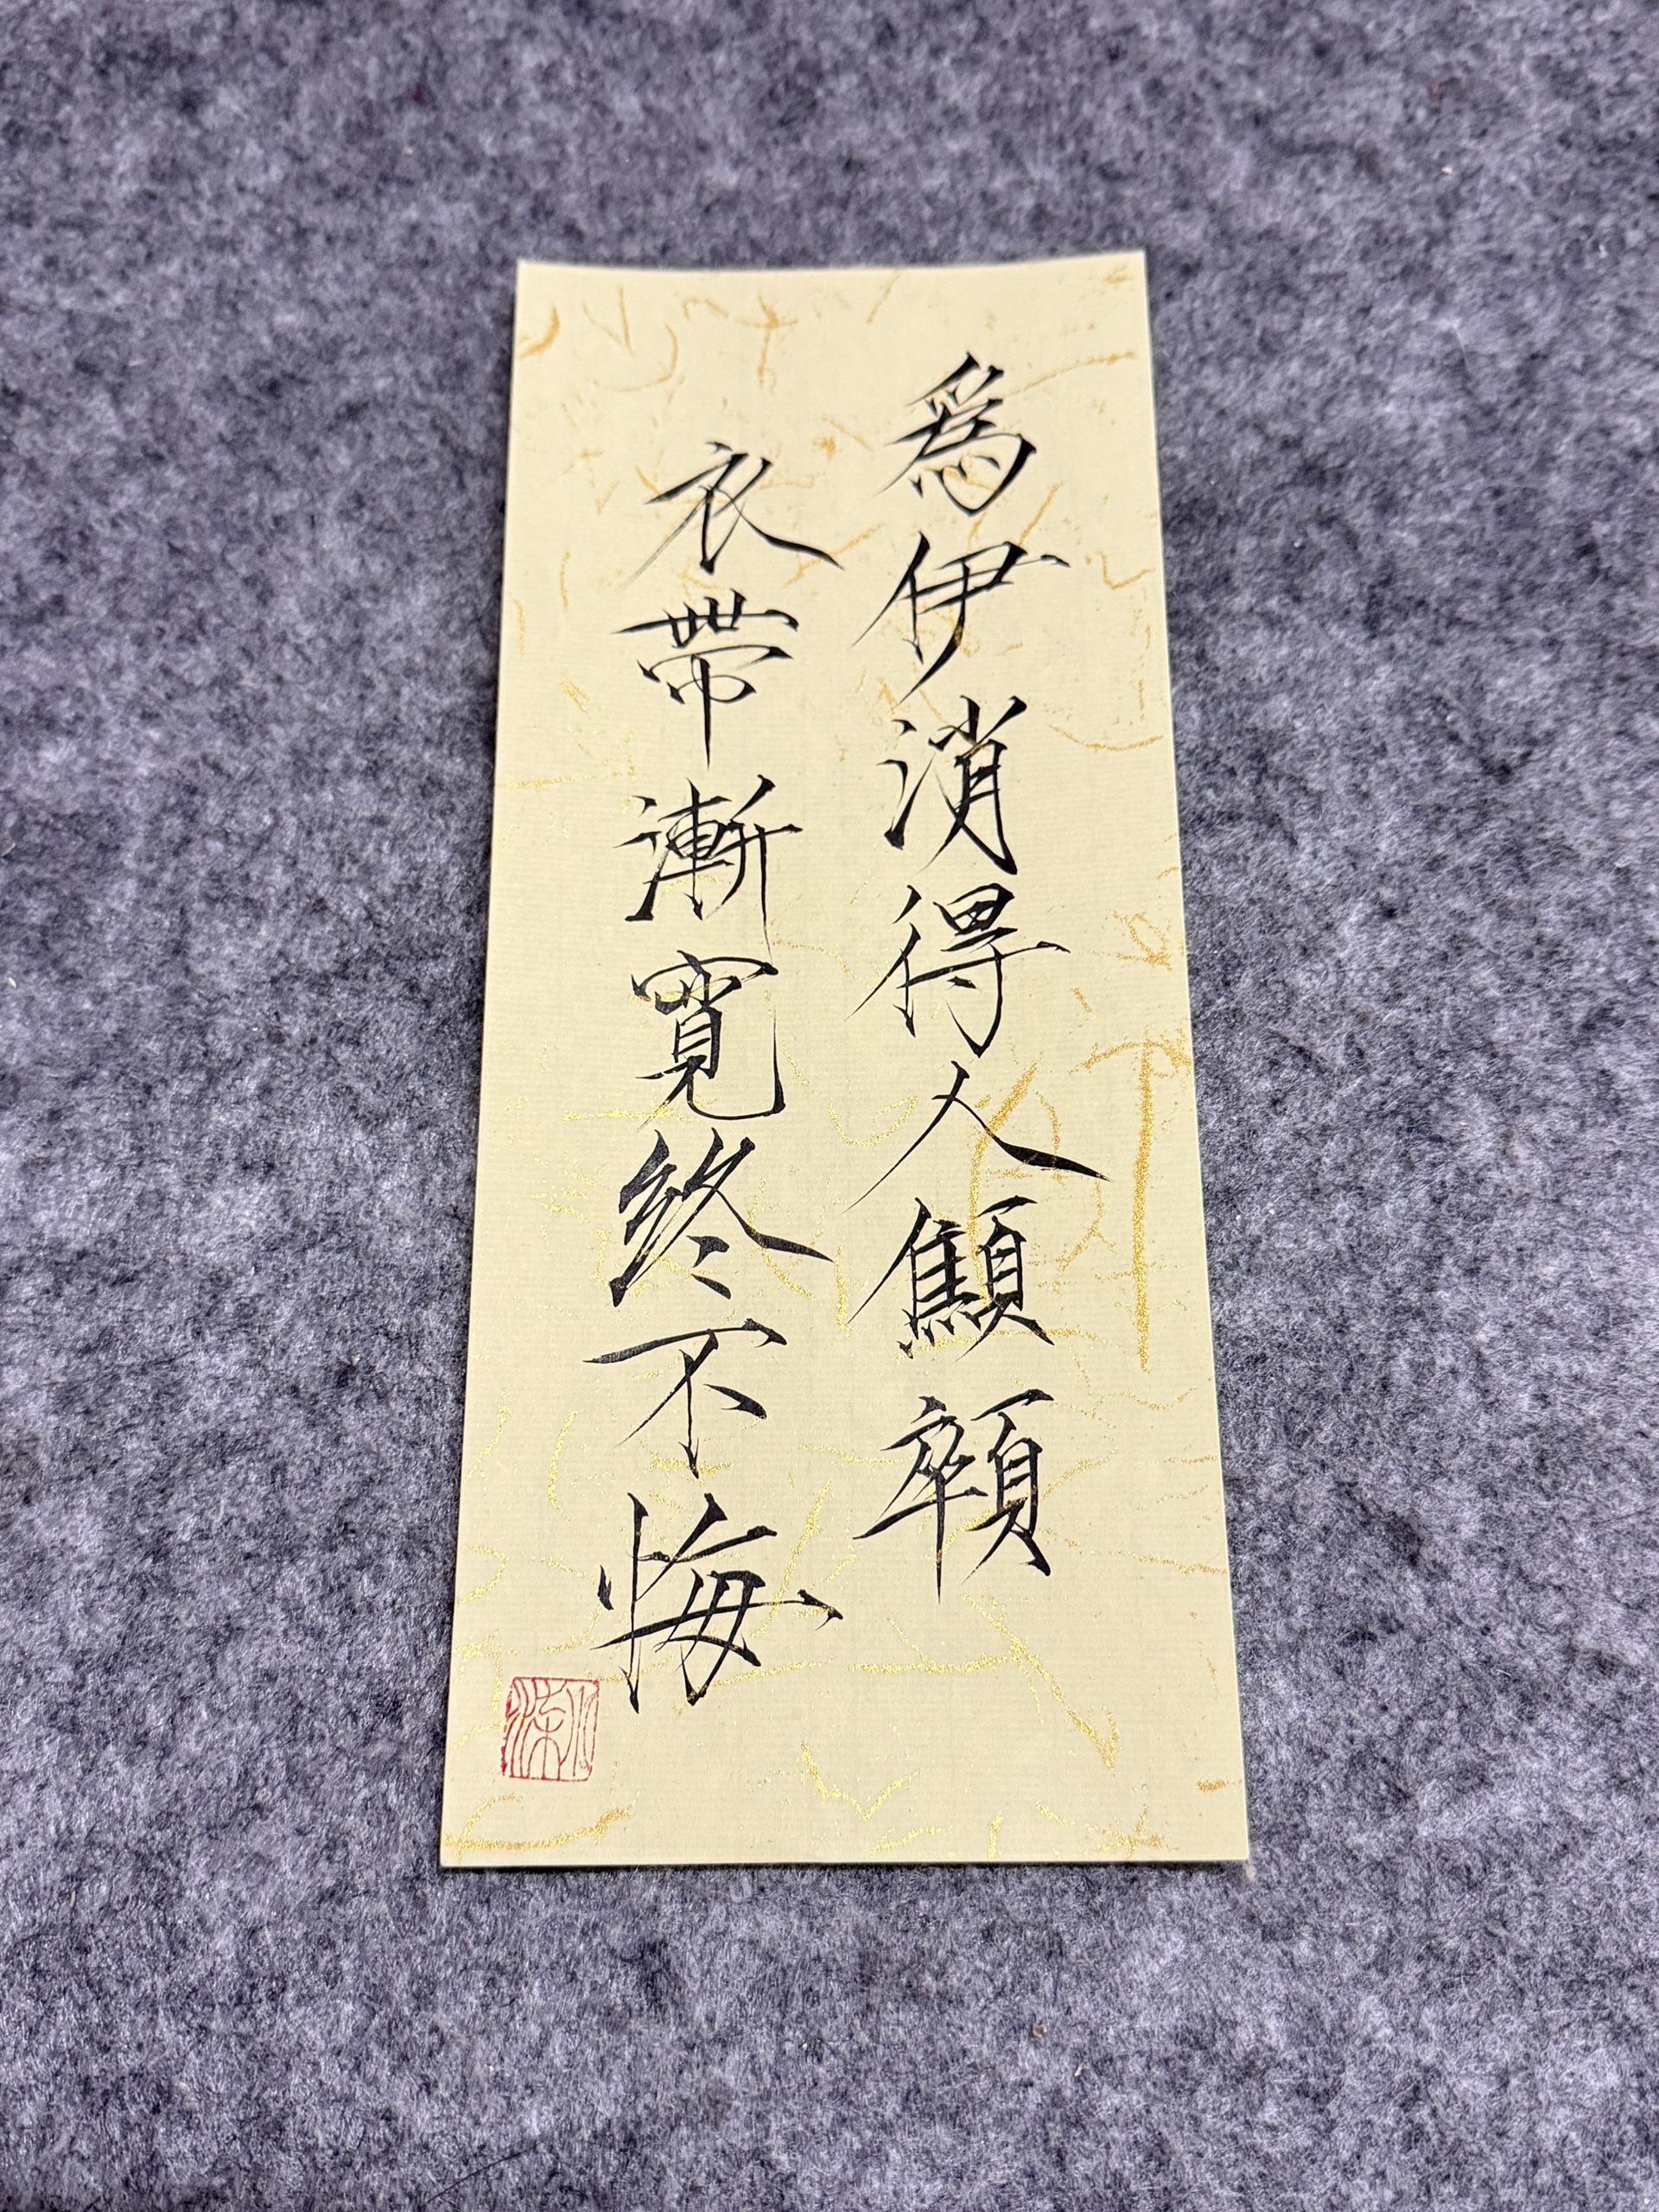 爲伊消得人顦顇
衣帶漸寬終不悔